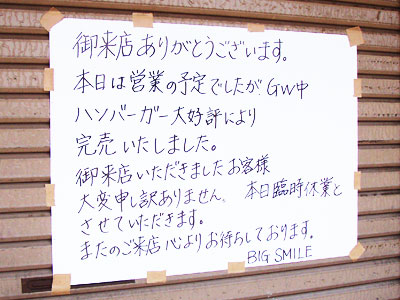 御来店ありがとうございます。
本日は営業の予定でしたが GW中
ハンバーガー大好評により
完売いたしました。
御来店いただきましたお客様
大変申し訳ありません。 本日臨時休業と
させていただきます。
またのご来店心よりお待ちしております。
BIG SMILE